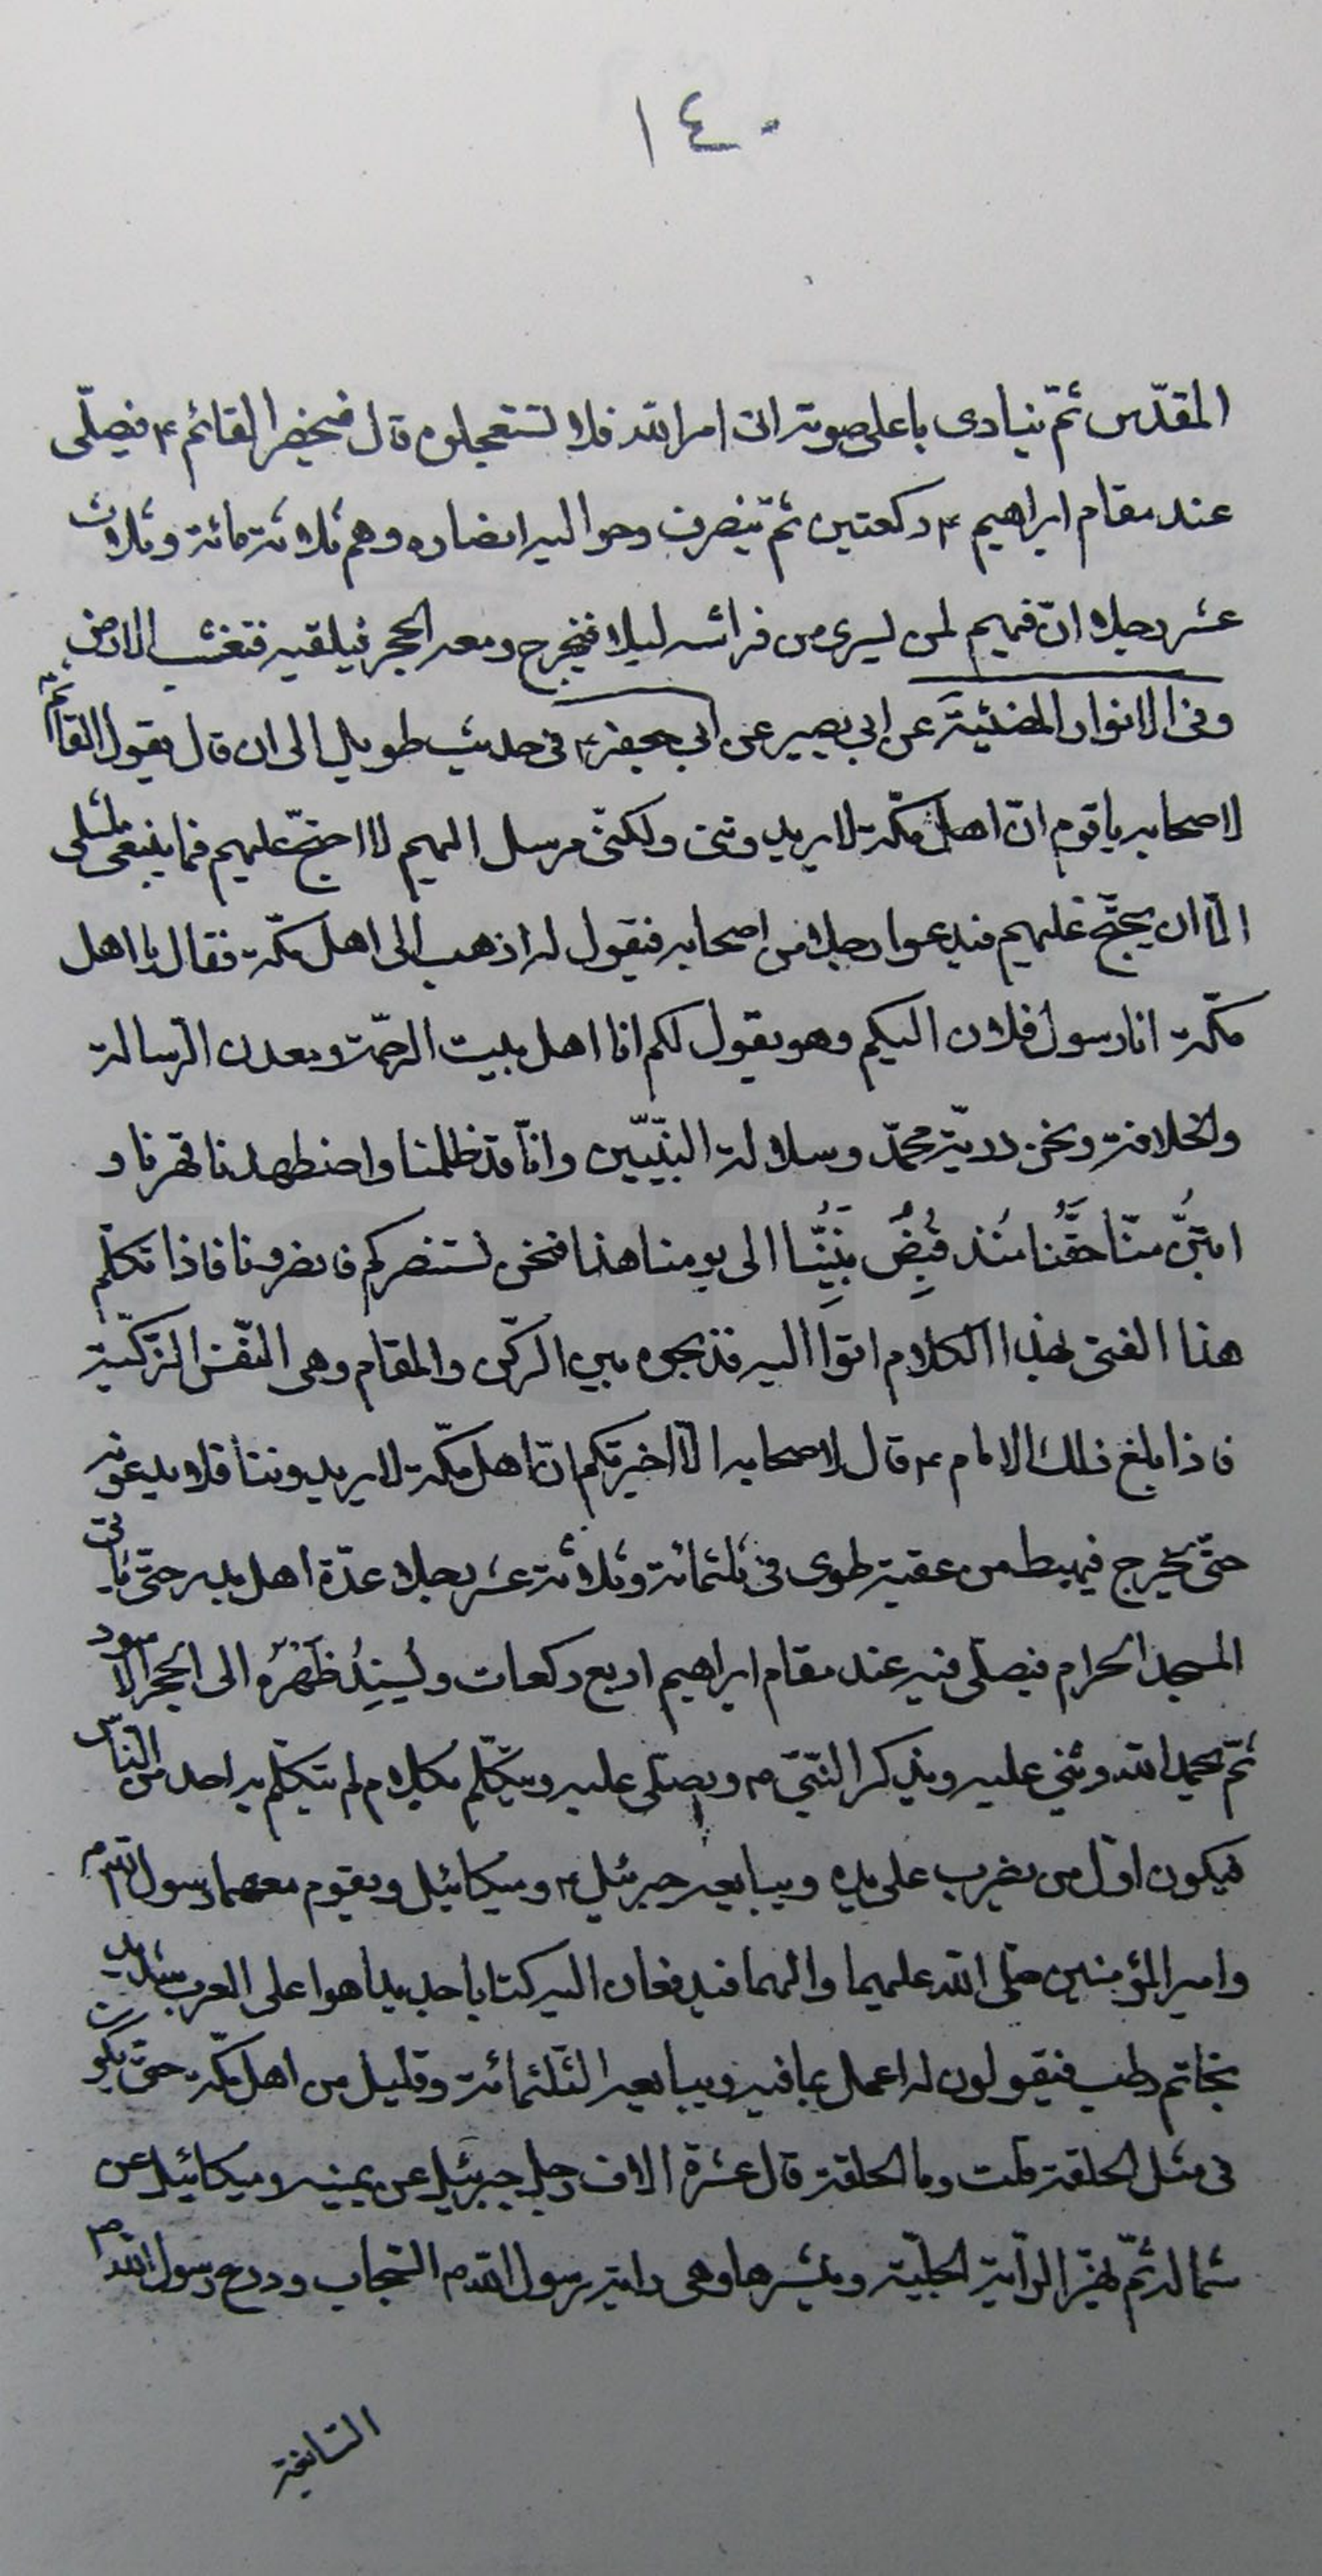 ١٤٠
المقدّس ثمّ ينادى باعلى صوته اتى امر الله فلا تستعجلوه قال فيحضر القائم ع فيصلّى
عند مقام ابراهيم ع ركعتين ثمّ ينصرف وحواليه انصاره وهم ثلاثة مائة وثلاث
عشر رجلا انّ فيهم لمن يسرى من فراشه ليلا فيخرج ومعه الحجر فيلقيه فتعشب الارض
وفى الانوار المضيئة عن ابى بصير عن ابى جعفر ع فى حديث طويل الى ان قال يقول القائم ع
لاصحابه يا قوم انّ اهل مكّة لا يريدوننى ولكنّى مرسل اليهم لا احتجّ عليهم فما ينبغى لمثلى
الّا ان يحتجّ عليهم فيدعوا رجلا من اصحابه فيقول له اذهب الى اهل مكّة فقال يا اهل
مكّة انا رسول فلان اليكم وهو يقول لكم انا اهل بيت الرحمة ومعدن الرسالة
والخلافة ونحن ذريّة محمّد وسلالة النبيّين وانّا قد ظلمنا واضطهدنا قهرنا و
ابتزّ منّا حقّنا منذ قبض نبيّنا الى يومنا هذا فنحن نستنصركم فانصرونا فاذا تكلّم
هذا الفتى بهذا الكلام اتوا اليه فذبحوه بين الركن والمقام وهى النفس الزكيّة
فاذا بلغ ذلك الامام ع قال لاصحابه الا اخبرتكم انّ اهل مكّة لا يريدوننا فلا يدعونه
حتّى يخرج فيهبط من عقبة طوى فى ثلثمائة وثلاثة عشر رجلا عدّة اهل بدر حتّى يأتى
المسجد الحرام فيصلّى فيه عند مقام ابراهيم اربع ركعات ويُسنِدُ ظَهْرَه الى الحجر الاسود
ثمّ يحمد الله ويثنى عليه ويذكر النبىّ ص ويصلّى عليه ويتكلّم بكلام لم يتكلّم به احد من الناس
فيكون اوّل من يضرب على يده ويبايعه جبرئيل ع وميكائيل ويقوم معهما رسول الله ص
وامير المؤمنين صلّى الله عليهما والهما فيدفعان اليه كتابا جديدا هوا على العرب شديد
بخاتم رطب فيقولون له اعمل بما فيه ويبايعه الثلثمائة وقليل من اهل مكّة حتّى يكون
فى مثل الحلقة قلت وما الحلقة قال عشرة الاف رجل جبرئيل عن يمينه وميكائيل عن
شماله ثمّ يهزّ الراية الجليّة وينشرها وهى راية رسول الله ص السحاب ودرع رسول الله ص
السابغة